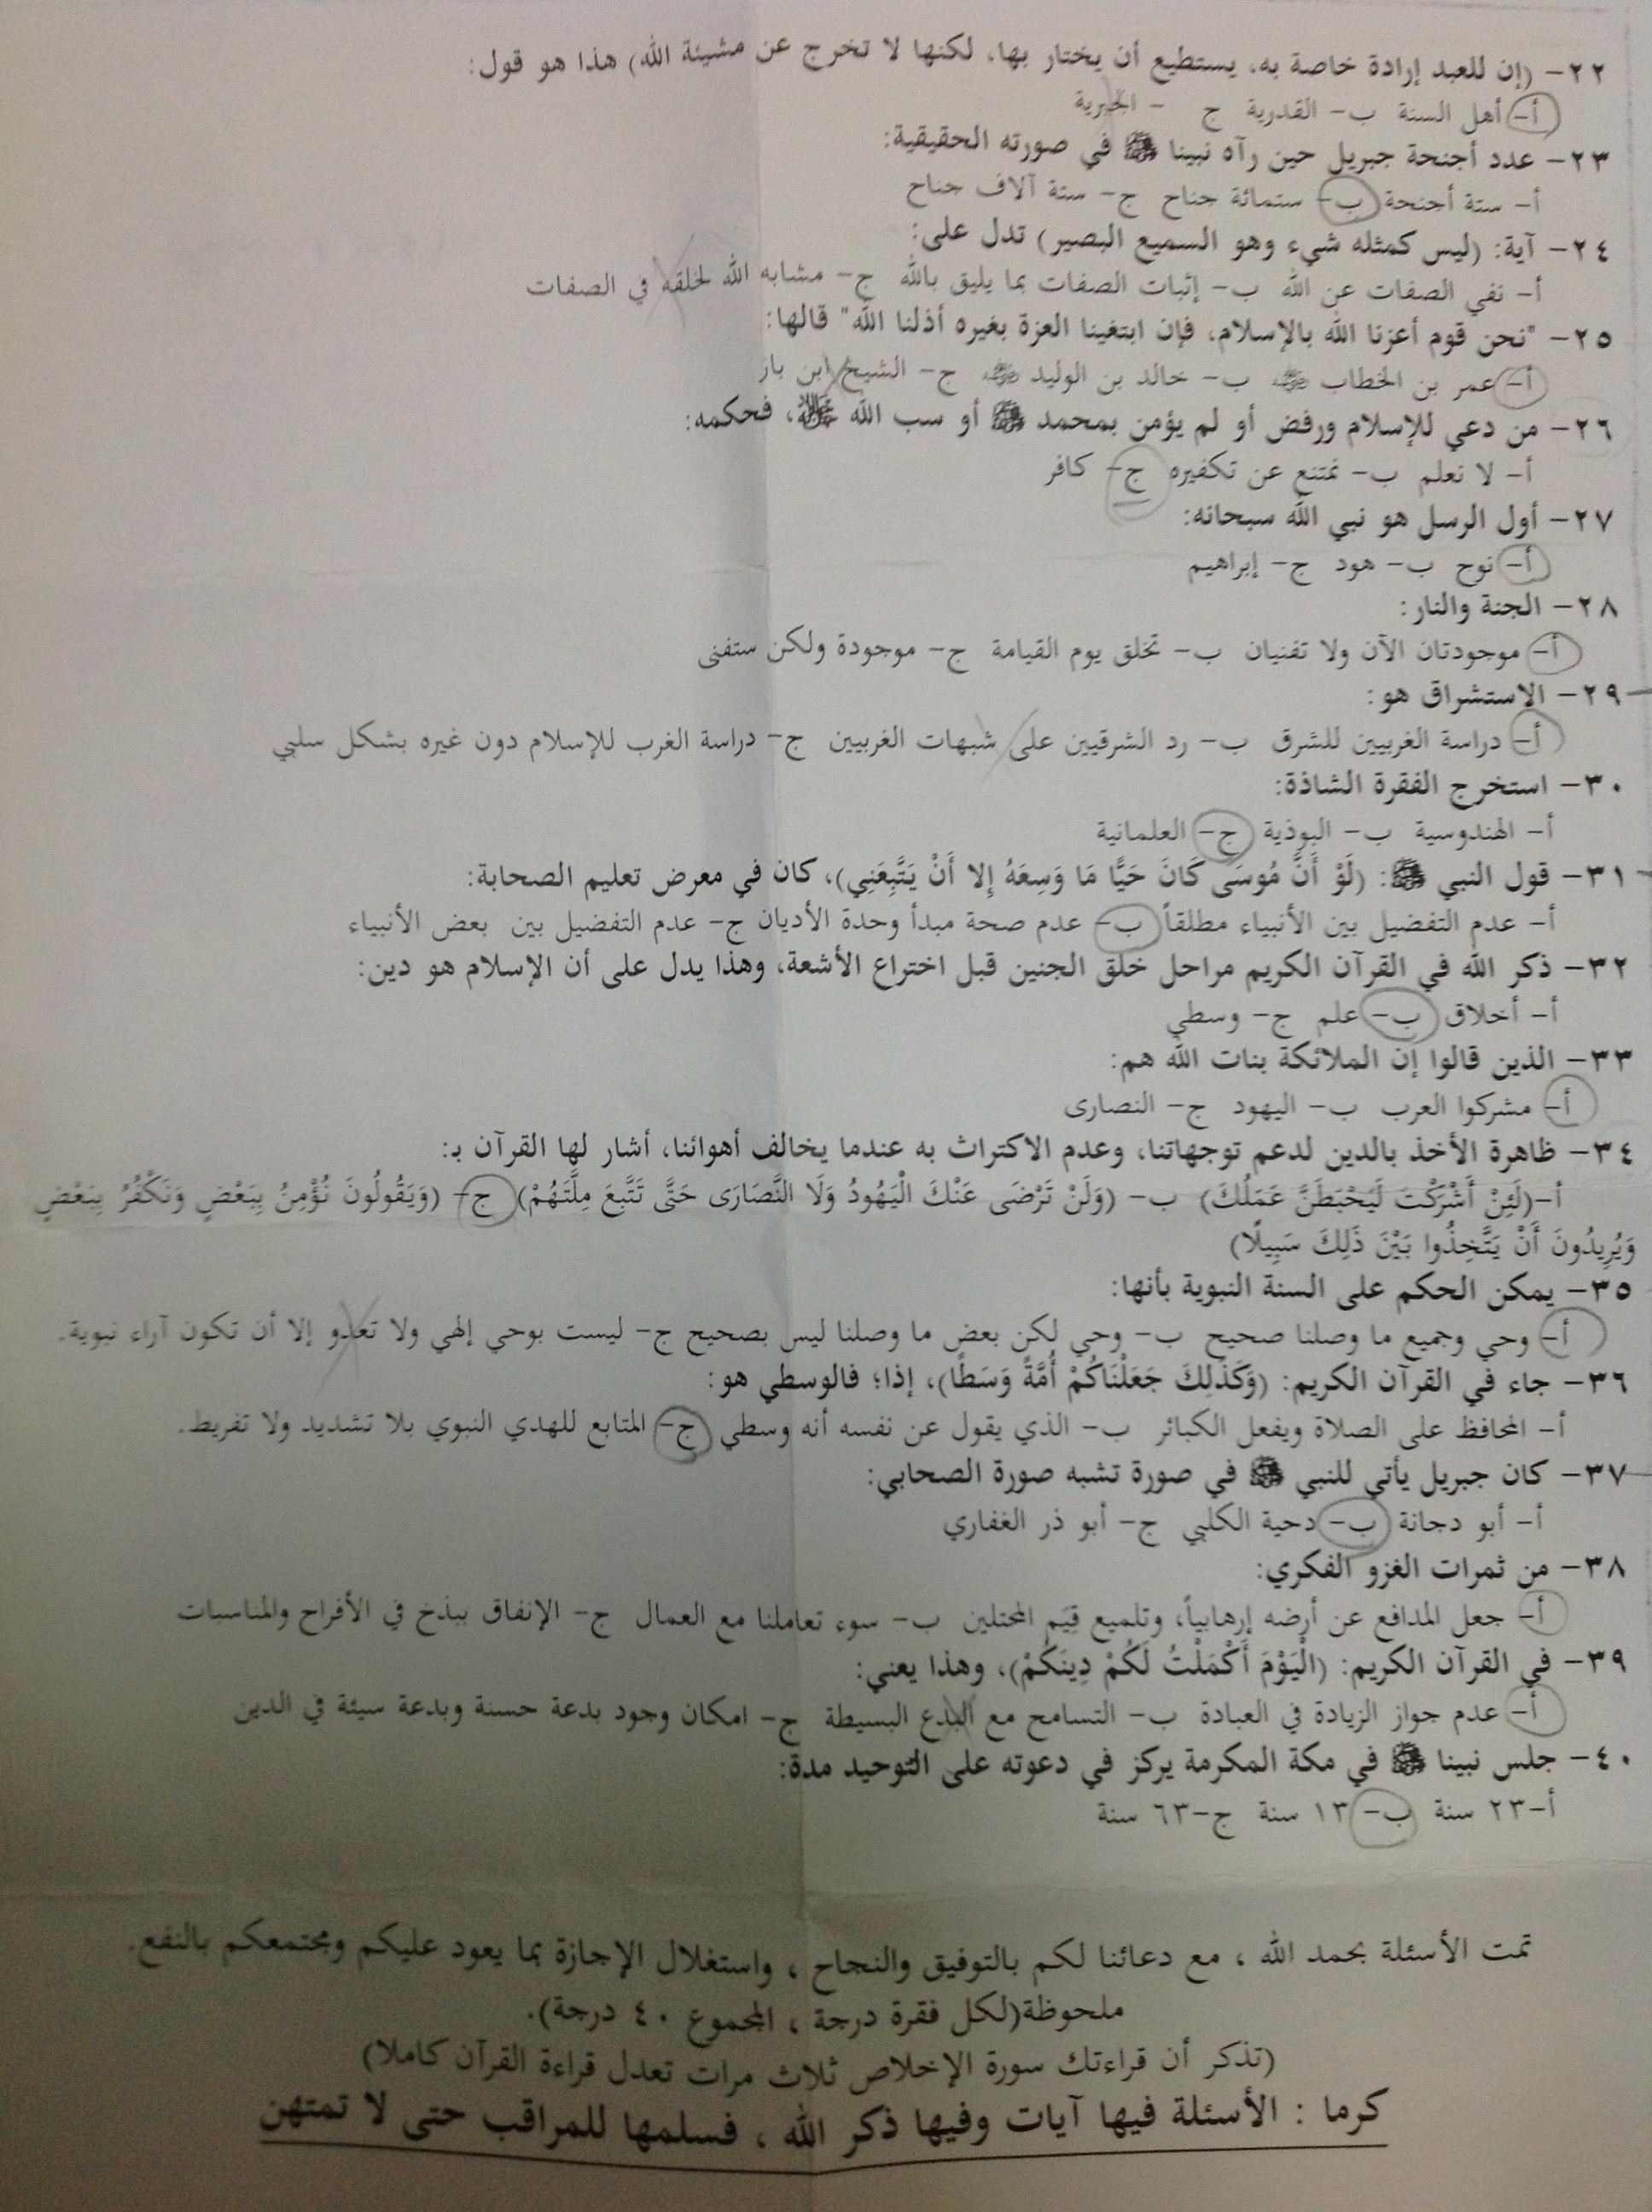 ٢٢- (إن للعبد إرادة خاصة به، يستطيع أن يختار بها، لكنها لا تخرج عن مشيئة الله) هذا هو قول:
أ- أهل السنة ب- القدرية ج - الجبرية
٢٣- عدد أجنحة جبريل حين رآه نبينا ﷺ في صورته الحقيقية:
أ- ستة أجنحة ب- ستمائة جناح ج- ستة آلاف جناح
٢٤- آية: (ليس كمثله شيء وهو السميع البصير) تدل على:
أ- نفي الصفات عن الله ب- إثبات الصفات بما يليق بالله ج- مشابه الله لخلقه في الصفات
٢٥- "نحن قوم أعزنا الله بالإسلام، فإن ابتغينا العزة بغيره أذلنا الله" قالها:
أ- عمر بن الخطاب ﷺ ب- خالد بن الوليد ﷺ ج- الشيخ ابن باز
٢٦- من دعي للإسلام ورفض أو لم يؤمن بمحمد ﷺ أو سب الله ﷻ، فحكمه:
أ- لا نعلم ب- نمتنع عن تكفيره ج- كافر
٢٧- أول الرسل هو نبي الله سبحانه:
أ- نوح ب- هود ج- إبراهيم
٢٨- الجنة والنار:
أ- موجودتان الآن ولا تفنيان ب- تخلق يوم القيامة ج- موجودة ولكن ستفنى
٢٩- الاستشراق هو:
أ- دراسة الغربيين للشرق ب- رد الشرقيين على شبهات الغربيين ج- دراسة الغرب للإسلام دون غيره بشكل سلبي
٣٠- استخرج الفقرة الشاذة:
أ- الهندوسية ب- البوذية ج- العلمانية
٣١- قول النبي ﷺ: (لَوْ أَنَّ مُوسَى كَانَ حَيًّا مَا وَسِعَهُ إِلا أَنْ يَتَّبِعَنِي)، كان في معرض تعليم الصحابة:
أ- عدم التفضيل بين الأنبياء مطلقاً ب- عدم صحة مبدأ وحدة الأديان ج- عدم التفضيل بين بعض الأنبياء
٣٢- ذكر الله في القرآن الكريم مراحل خلق الجنين قبل اختراع الأشعة، وهذا يدل على أن الإسلام هو دين:
أ- أخلاق ب- علم ج- وسطي
٣٣- الذين قالوا إن الملائكة بنات الله هم:
أ- مشركوا العرب ب- اليهود ج- النصارى
٣٤- ظاهرة الأخذ بالدين لدعم توجهاتنا، وعدم الاكتراث به عندما يخالف أهوائنا، أشار لها القرآن بـ:
أ-(لَئِنْ أَشْرَكْتَ لَيَحْبَطَنَّ عَمَلُكَ) ب- (وَلَنْ تَرْضَى عَنْكَ الْيَهُودُ وَلَا النَّصَارَى حَتَّى تَتَّبِعَ مِلَّتَهُمْ) ج- (وَيَقُولُونَ نُؤْمِنُ بِبَعْضٍ وَنَكْفُرُ بِبَعْضٍ
وَيُرِيدُونَ أَنْ يَتَّخِذُوا بَيْنَ ذَلِكَ سَبِيلًا)
٣٥- يمكن الحكم على السنة النبوية بأنها:
أ- وحي وجميع ما وصلنا صحيح ب- وحي لكن بعض ما وصلنا ليس بصحيح ج- ليست بوحي إلهي ولا تعدو إلا أن تكون آراء نبوية.
٣٦- جاء في القرآن الكريم: (وَكَذَلِكَ جَعَلْنَاكُمْ أُمَّةً وَسَطًا)، إذا؛ فالوسطي هو:
أ- المحافظ على الصلاة ويفعل الكبائر ب- الذي يقول عن نفسه أنه وسطي ج- المتابع للهدي النبوي بلا تشديد ولا تفريط.
٣٧- كان جبريل يأتي للنبي ﷺ في صورة تشبه صورة الصحابي:
أ- أبو دجانة ب- دحية الكلبي ج- أبو ذر الغفاري
٣٨- من ثمرات الغزو الفكري:
أ- جعل المدافع عن أرضه إرهابياً، وتلميع قِيَم المحتلين ب- سوء تعاملنا مع العمال ج- الإنفاق ببذخ في الأفراح والمناسبات
٣٩- في القرآن الكريم: (الْيَوْمَ أَكْمَلْتُ لَكُمْ دِينَكُمْ)، وهذا يعني:
أ- عدم جواز الزيادة في العبادة ب- التسامح مع البدع البسيطة ج- امكان وجود بدعة حسنة وبدعة سيئة في الدين
٤٠- جلس نبينا ﷺ في مكة المكرمة يركز في دعوته على التوحيد مدة:
أ-٢٣ سنة ب- ١٣ سنة ج-٦٣ سنة
تمت الأسئلة بحمد الله ، مع دعائنا لكم بالتوفيق والنجاح ، واستغلال الإجازة بما يعود عليكم ومجتمعكم بالنفع.
ملحوظة(لكل فقرة درجة ، المجموع ٤٠ درجة).
(تذكر أن قراءتك سورة الإخلاص ثلاث مرات تعدل قراءة القرآن كاملا)
كرما : الأسئلة فيها آيات وفيها ذكر الله ، فسلمها للمراقب حتى لا تمتهن